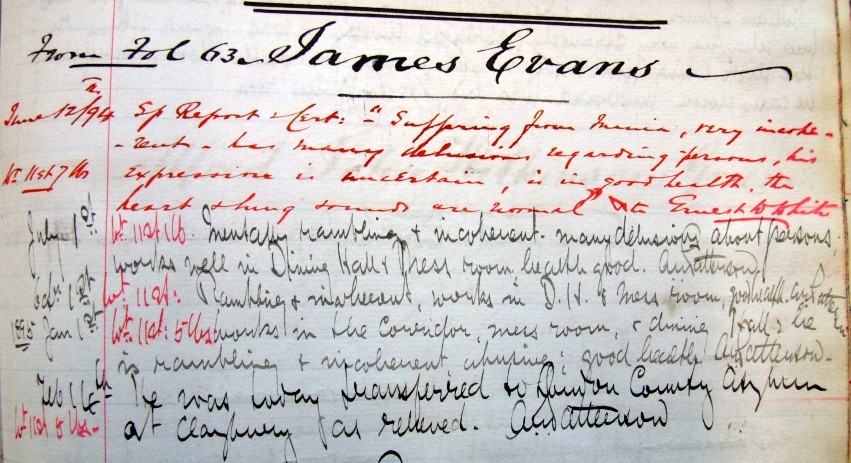 From Fol 63. James Evans
June 12th/94 Sp Report & Cert: - "Suffering from Mania, very incohe-
-rent - has many delusions regarding persons, his
Wt 11st 7 lbs expression is uncertain, is in good health, the
heart & lung sounds are normal" Ernest W White
July 1st Wt. 11st 1lb. Mentally rambling & incoherent. many delusions about persons.
works well in Dining Hall & Mess room. health good. AWPatterson
Octr 1st Wt. 11st: Rambling & incoherent, works in D.H. & mess room, good health. AWPatterson
1895 Jan 1st Wt. 11st: 5 lbs: works in the Corridor, mess room, & dining Hall: he
is rambling & incoherent good health AWPatterson.
Feb 14th He was today transferred to London County Asylum
Wt 11st 5 lbs - at Claybury as relieved. AWPatterson